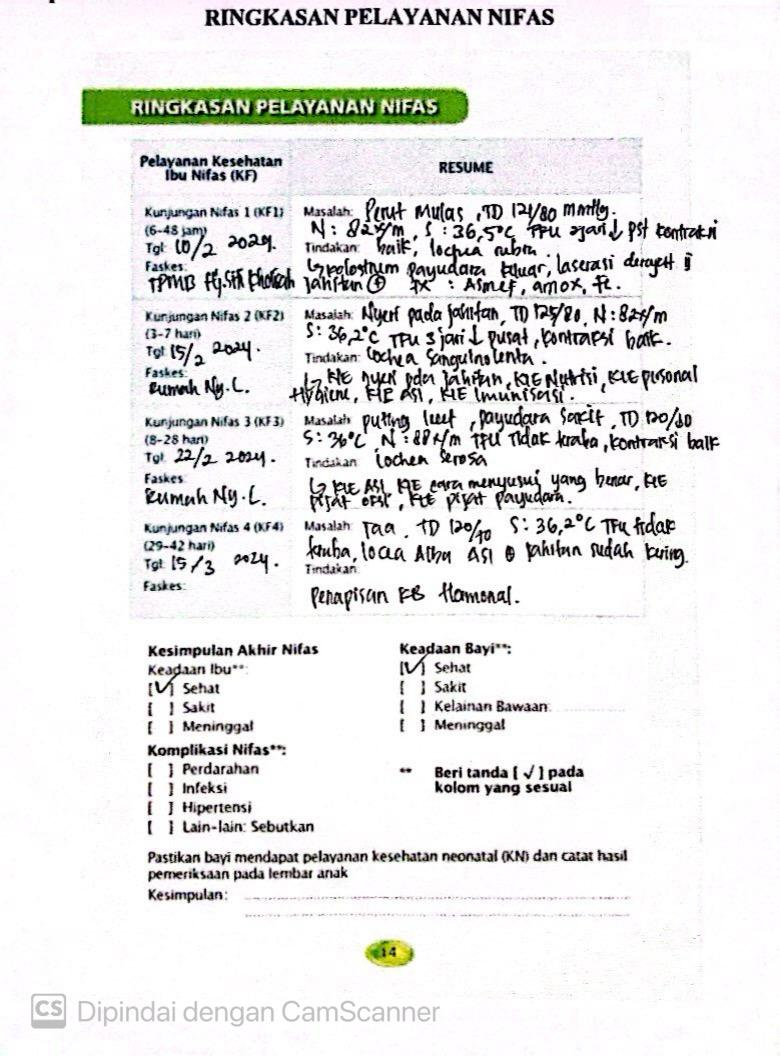 RINGKASAN PELAYANAN NIFAS
RINGKASAN PELAYANAN NIFAS
Pelayanan Kesehatan
Ibu Nifas (KF)
RESUME
Kunjungan Nifas 1 (KF1)
(6-48 jam)
Tgl: 10/2 2024.
Faskes:
TPMB Hj. Siti
Masalah: Perut Mulas, TD 121/80 mmHg.
N: 82x/m, S: 36,5°C TFU 2jari ↓ pst kontraksi
Tindakan: baik, lochea rubra.
↳ kolostrum payudara keluar, laserasi derajat ii
jahitan ⊕ TX: Asmef, amox, fe.
Kunjungan Nifas 2 (KF2)
(3-7 hari)
Tgl: 15/2 2024.
Faskes:
Rumah Ny. L.
Masalah: Nyeri pada jahitan, TD 125/80, N: 82x/m
S: 36,2°C TFU 3 jari ↓ pusat, kontraksi baik.
Tindakan: Lochea Sanguinolenta.
↳ KIE nyeri pda jahitan, KIE Nutrisi, KIE personal
Hygiene, KIE ASI, KIE Imunisasi.
Kunjungan Nifas 3 (KF3)
(8-28 hari)
Tgl: 22/2 2024.
Faskes:
Rumah Ny. L.
Masalah: puting lecet, payudara sakit, TD 120/80
S: 36°C N: 88x/m TFU Tidak teraba, kontraksi baik
Tindakan: lochea serosa
↳ KIE ASI, KIE cara menyusui yang benar, KIE
pijat oksi, KIE pijat payudara.
Kunjungan Nifas 4 (KF4)
(29-42 hari)
Tgl: 15/3 2024.
Faskes:
Masalah: Taa. TD 120/70 S: 36,2°C TFU tidak
teraba, locea Alba ASI ⊕ jahitan sudah kering.
Tindakan:
Penapisan KB Hormonal.
Kesimpulan Akhir Nifas
Keadaan Ibu**:
[√] Sehat
[ ] Sakit
[ ] Meninggal
Komplikasi Nifas**:
[ ] Perdarahan
[ ] Infeksi
[ ] Hipertensi
[ ] Lain-lain: Sebutkan
Keadaan Bayi**:
[√] Sehat
[ ] Sakit
[ ] Kelainan Bawaan:
[ ] Meninggal
** Beri tanda [ √ ] pada
kolom yang sesuai
Pastikan bayi mendapat pelayanan kesehatan neonatal (KN) dan catat hasil
pemeriksaan pada lembar anak
Kesimpulan:
14
CS Dipindai dengan CamScanner